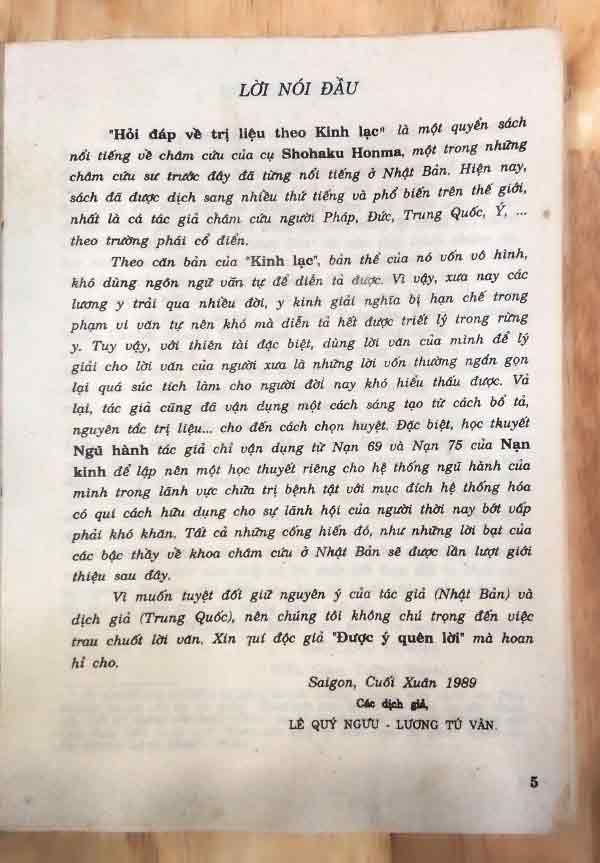 LỜI NÓI ĐẦU
"Hỏi đáp về trị liệu theo Kinh lạc" là một quyển sách
nổi tiếng về châm cứu của cụ Shohaku Honma, một trong những
châm cứu sư trước đây đã từng nổi tiếng ở Nhật Bản. Hiện nay,
sách đã được dịch sang nhiều thứ tiếng và phổ biến trên thế giới,
nhất là cá tác giả châm cứu người Pháp, Đức, Trung Quốc, Ý, ...
theo trường phái cổ điển.
Theo căn bản của "Kinh lạc", bản thể của nó vốn vô hình,
khó dùng ngôn ngữ văn tự để diễn tả được. Vì vậy, xưa nay các
lương y trải qua nhiều đời, y kinh giải nghĩa bị hạn chế trong
phạm vi văn tự nên khó mà diễn tả hết được triết lý trong rừng
y. Tuy vậy, với thiên tài đặc biệt, dùng lời văn của mình để lý
giải cho lời văn của người xưa là những lời vốn thường ngắn gọn
lại quá súc tích làm cho người đời nay khó hiểu thấu được. Vả
lại, tác giả cũng đã vận dụng một cách sáng tạo từ cách bổ tả,
nguyên tắc trị liệu... cho đến cách chọn huyệt. Đặc biệt, học thuyết
Ngũ hành tác giả chỉ vận dụng từ Nạn 69 và Nạn 75 của Nạn
kinh để lập nên một học thuyết riêng cho hệ thống ngũ hành của
mình trong lãnh vực chữa trị bệnh tật với mục đích hệ thống hóa
có qui cách hữu dụng cho sự lãnh hội của người thời nay bớt vấp
phải khó khăn. Tất cả những cống hiến đó, như những lời bạt của
các bậc thầy về khoa châm cứu ở Nhật Bản sẽ được lần lượt giới
thiệu sau đây.
Vì muốn tuyệt đối giữ nguyên ý của tác giả (Nhật Bản) và
dịch giả (Trung Quốc), nên chúng tôi không chú trọng đến việc
trau chuốt lời văn. Xin quí độc giả "Được ý quên lời" mà hoan
hỉ cho.
Saigon, Cuối Xuân 1989
Các dịch giả,
LÊ QUÝ NGƯU - LƯƠNG TÚ VÂN.
5